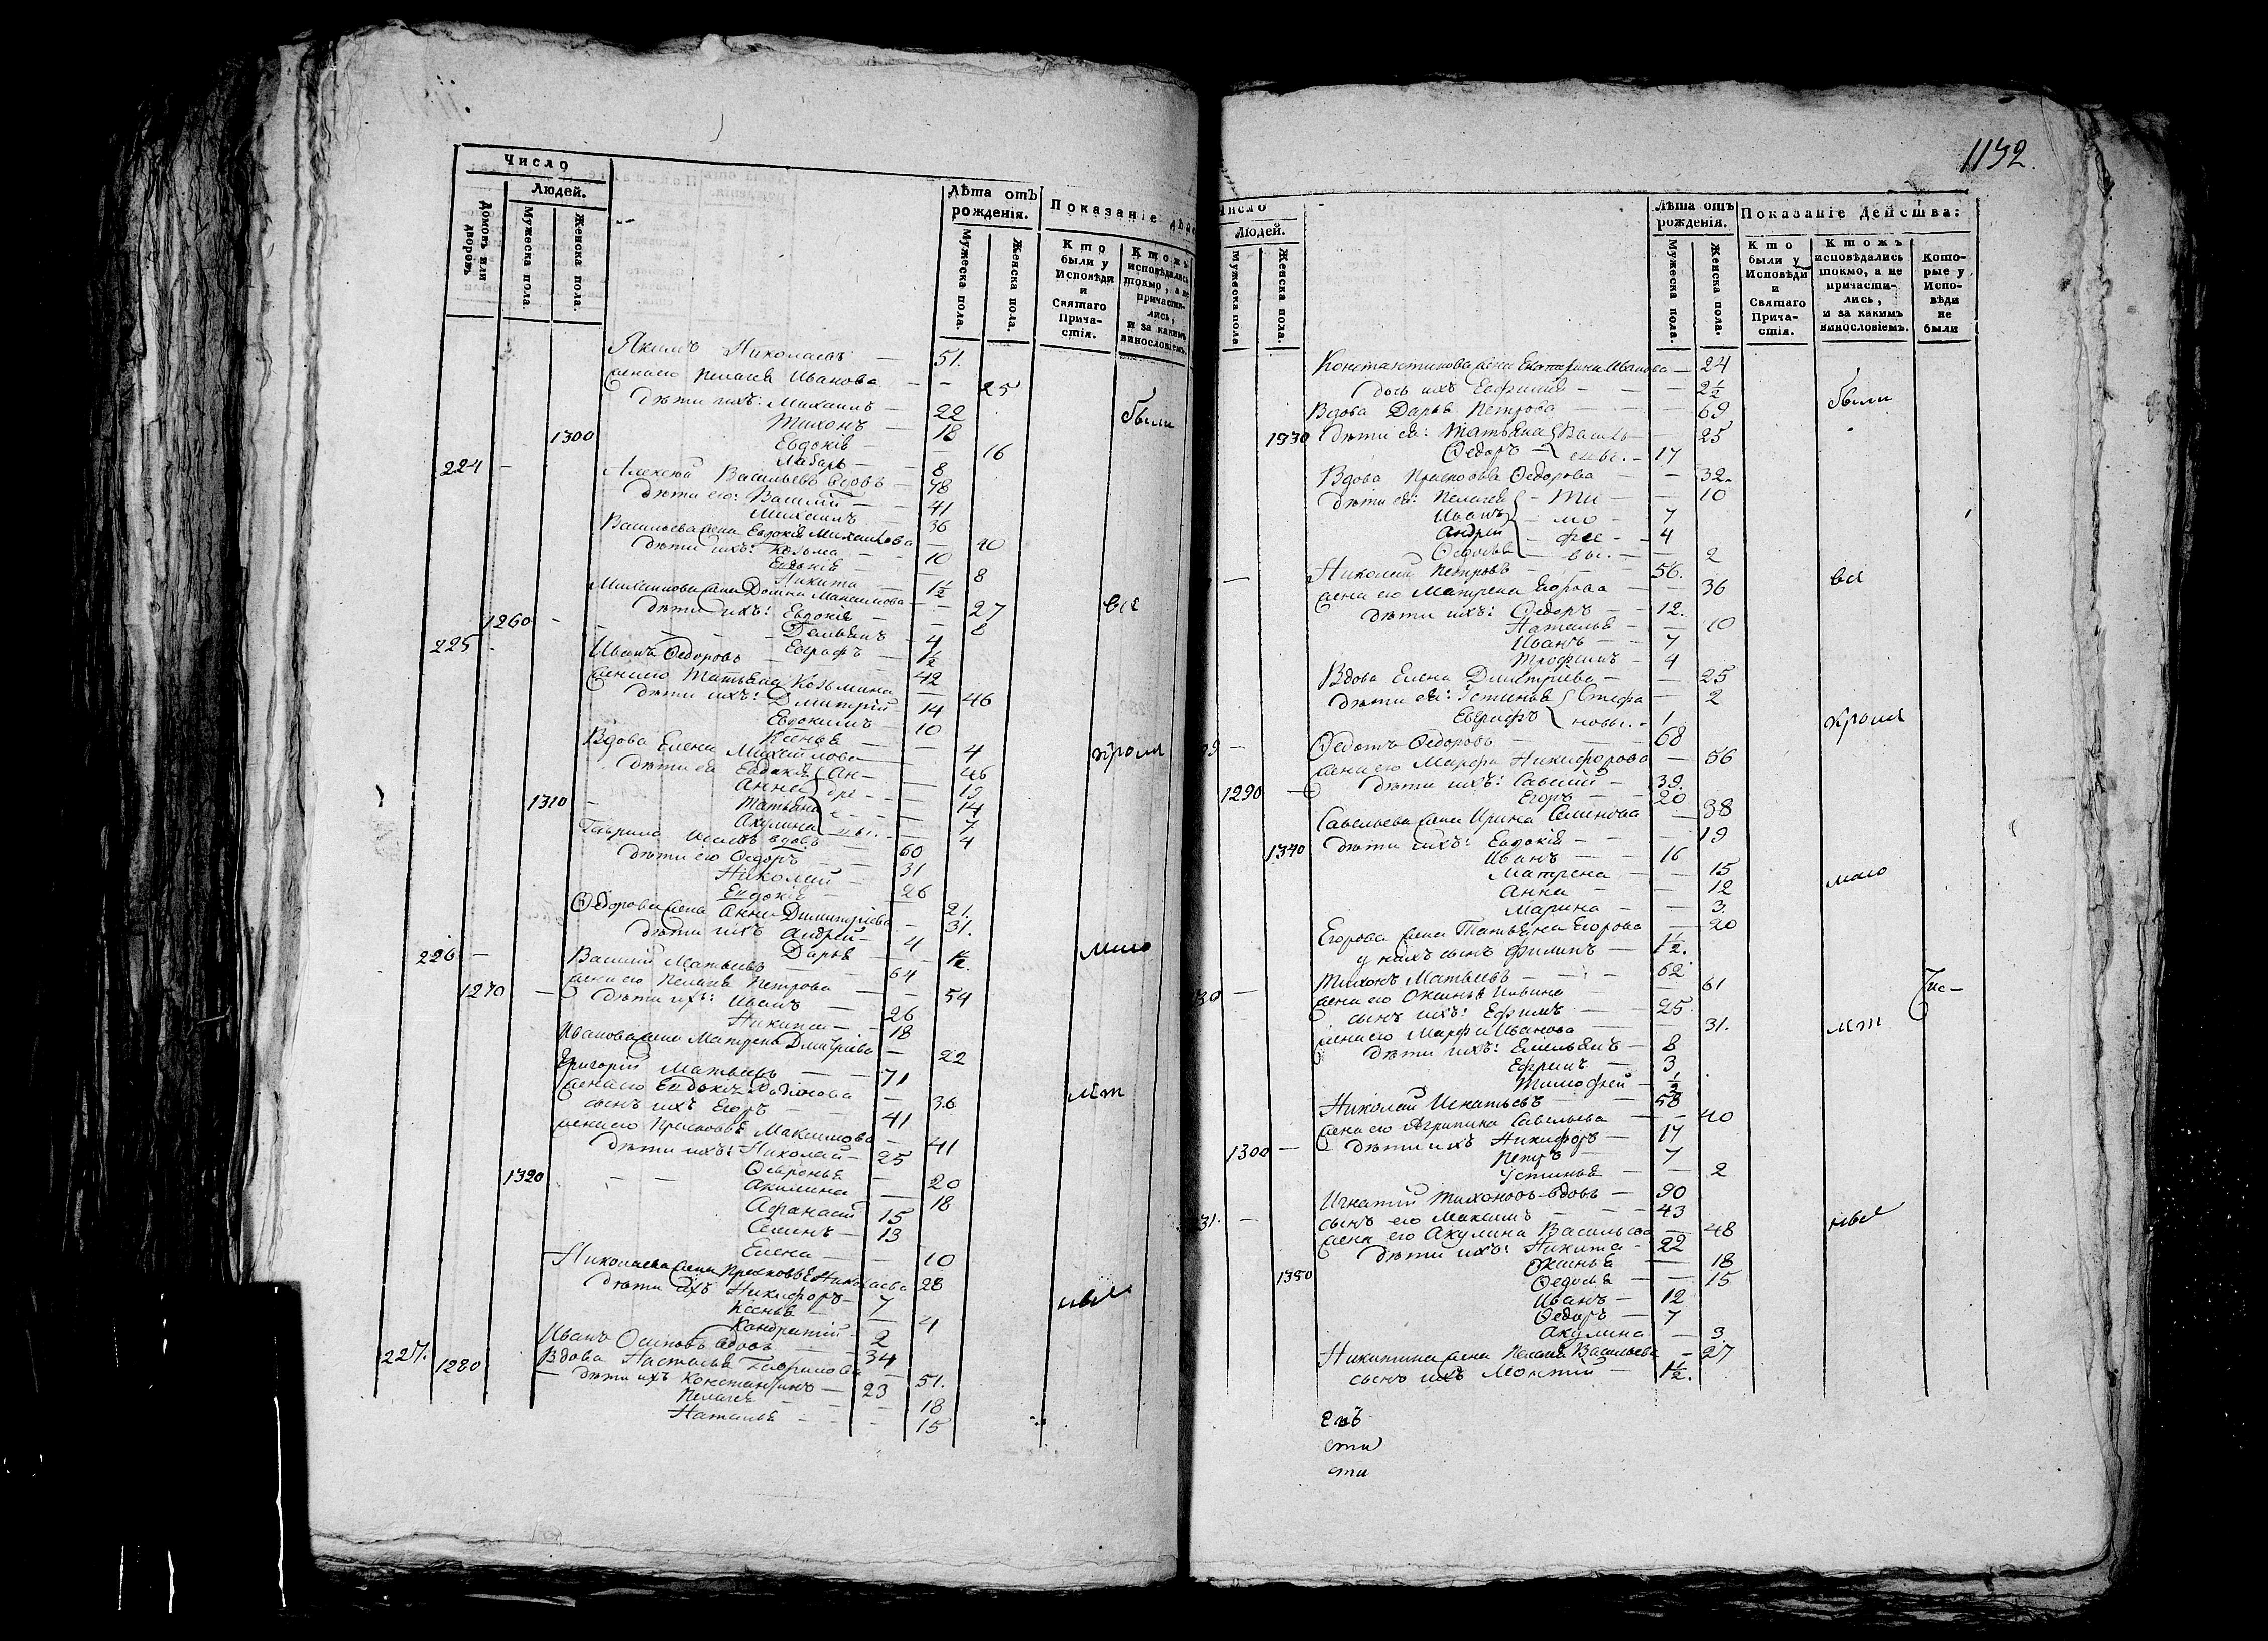 Число
Людей.
Домовъ или дворовъ.
Мужеска пола.
Женска пола.
Лѣта отъ рожденія.
Мужеска пола.
Женска пола.
Показаніе
Кто были у Исповѣди и Святаго Причастія.
Ктожъ исповѣдались токмо, а не причастились, и за какимъ винословіемъ.
Якимъ Николаевъ — 51.
жена его Пелагея Иванова — — 25
дѣти ихъ: Михаилъ — 22 были
Тихонъ — 18
1300 Евдокія — 16
8
224 — Алексѣй Васильевъ вдовъ — 78
дѣти его: Василій — 41
Михаилъ 36
Васильева жена Евдокія Михайлова — 40
дѣти ихъ: Козьма — 10
Евдокія — 8
Никита — 1½
Михайлова жена Домна Максимова — 27 всѣ
дѣти ихъ: Евдокія — 8
1260 — Демьянъ — 4
Евграфъ — 1½
225 Иванъ Федоровъ — 42
жена его Татьяна Козьмина — 46
дѣти ихъ: Дмитрій 14
Евдокимъ — 10
Ксенья — 4
Вдова Елена Михайлова — 46 кромѣ
дѣти ея Евдокія Ан— 19
Анна дре — 14
1310 — Татьяна е — 7
Акулина вы. — 4
Гаврила вдовъ — 60
дѣти его Федоръ — 31
Николай — 26
Евдокія — 21.
Федорова жена Анна Димитріева — 31.
дѣти ихъ Андрей — 4
Дарья — 1½. мало
226 — Василій Матвѣевъ — 64
жена его Пелагея Петрова — 54
1270 — дѣти ихъ: Иванъ — 26
Никита — 18
Иванова жена Матрена Дмитріева — 22
Григорій Матвѣевъ — 71
жена его Евдокія Родіонова — 36 лѣт
сынъ ихъ Егоръ — 41
жена его Прасковья Максимова — 41
дѣти ихъ: Николай — 25
Февронья — 20
1320 — — Акилина — 18
Афанасій 15
Семенъ — 13
Елена — 10
Николаева жена Прасковья Николаева 28
дѣти ихъ Никифоръ — 7
Ксенья — 4
Кондратій — 2
Иванъ Осиповъ вдовъ — 34
227. Вдова Настасья Гаврилова — 51.
1280 — дѣти ихъ Константинъ — 23
Пелагея — 18
Наталья — 15
1132.
Число
Людей.
Мужеска пола
Женска пола.
Лѣта отъ рожденія.
Мужеска пола.
Женска пола.
Показаніе Действа:
Кто были у Исповѣди и Святаго Причастія.
Ктожъ исповѣдались токмо, а не причастились, и за какимъ винословіемъ.
Которые у Исповѣди не были
Константинова жена Екатерина Иванова — 24
дочь ихъ Евфимія — 2½
Вдова Дарья Петрова — 69 были
1330 дѣти ея: Татьяна Василь — 25
Федоръ евы. — 17
Вдова Прасковья Федорова — 32.
дѣти ея: Пелагея — Ти — 10
Иванъ — мо — 7
Андрей — фее — 4
Федосья — вы. — 2
Николай Петровъ — 56. всѣ
жена его Матрена Егорова — 36
дѣти ихъ: Федоръ — 12.
Наталья — 10
Иванъ — 7
Трофимъ — 4
Вдова Елена Дмитріева — 25
дѣти ея: Устинья Стефа — 2
Евграфъ новы. — 1 кромѣ
Федотъ Федоровъ — 68
жена его Марфа Никифорова — 56
1290 — дѣти ихъ: Савелій — 39.
Егоръ — 20
Савельева жена Ирина Семенова — 38
1340 дѣти ихъ: Евдокія — 19
Иванъ — 16
Матрена — 15
Анна — 12 мало
Марина — 3.
Егорова жена Татьяна Егорова — 20
у нихъ сынъ Филипъ — 1½.
Тихонъ Матвѣевъ — 62
жена его Оксинья — 61
сынъ ихъ: Ефимъ — 25
жена его Марфа Иванова — 31. лѣт
дѣти ихъ: Емельянъ — 8
Ефремъ — 3
Тимофей — ½
Николай Игнатьевъ — 58
жена его Агрипина Савельева — 40
1300 — дѣти ихъ Никифоръ — 17
Петръ — 7
Устинья — 2
Игнатій Тихоновъ вдовъ — 90
31. — сынъ его Максимъ — 43
жена его Акулина Васильева — 48
дѣти ихъ: Никита — 22
Оксинья — 18
1350 Федосья — 15
Иванъ — 12
Федоръ — 7
Акулина — 3.
Никитина жена Пелагея Васильева — 27
сынъ ихъ — 1½.
сти
сти